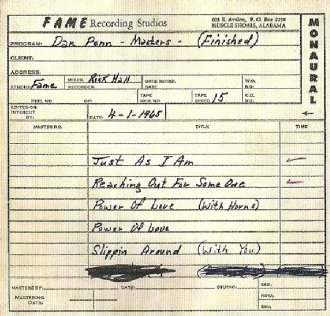 FAME Recording Studios
603 E. Avalon, P. O. Box 2238
MUSCLE SHOALS, ALABAMA
MONAURAL
PROGRAM: Dan Penn - Masters - (Finished)
CLIENT:
ADDRESS:
STUDIO: Fame
MIXER: Rick Hall
RECORDER
TAPE SPEED 15
W.O. NO.
C.O. NO.
REEL NO. OF
EDITED OR INTERCUT BY:
DATE: 4-1-1965
MASTERING
TITLE
TIME
Just As I Am
Reaching Out For Some One
Power Of Love (With Horns)
Power Of Love
Slippin Around (With You)
MASTERED BY:
DATE:
STUDIO:
MASTERING DATA: